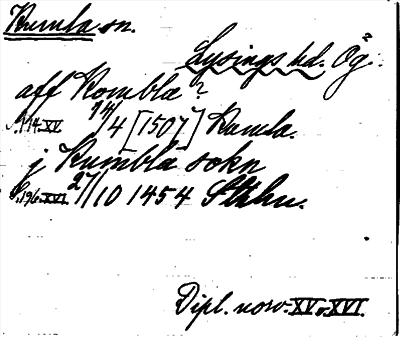 Kumla sn.
Lysings hd. Ög.
aff Kombla?
s. 114. XV. 14/4 [1507] Kumla.
j Kumbla sokn
S. 196. XVI. 27/10 1454 Sthm.
Dipl. norv. XV o. XVI.